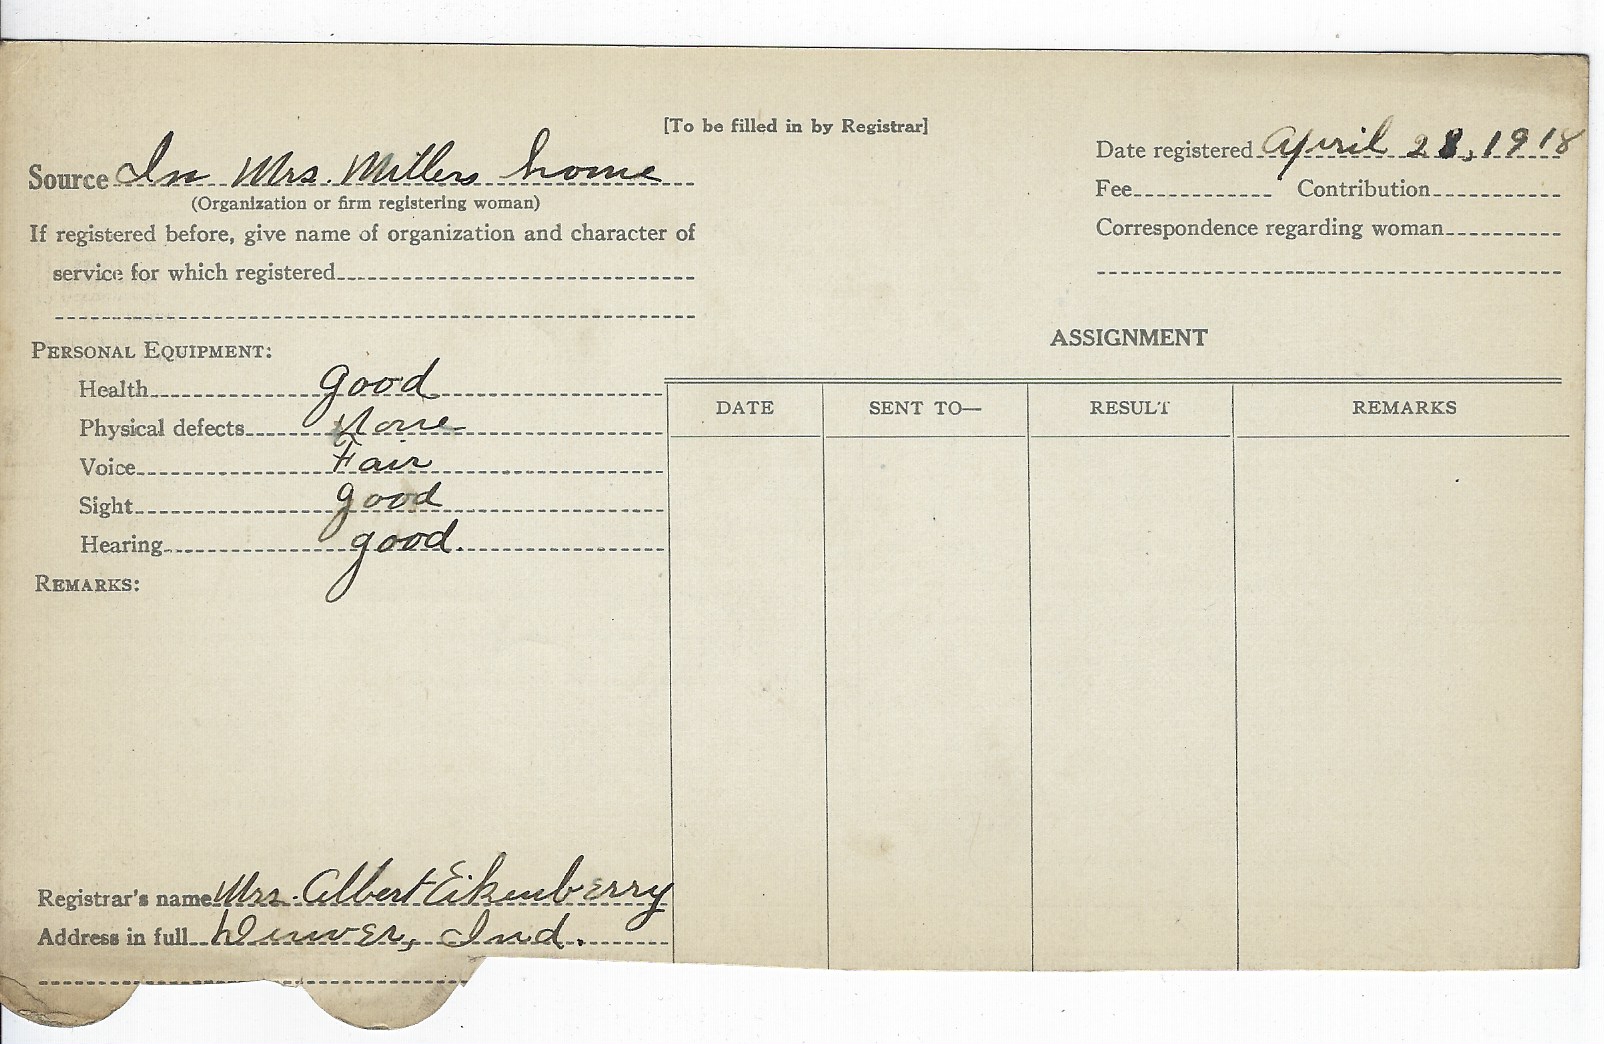 [To be filled in by Registrar]
Source In Mrs. Millers home
(Organization or firm registering woman)
If registered before, give name of organization and character of
service for which registered
Date registered April 28, 1918
Fee Contribution
Correspondence regarding woman
PERSONAL EQUIPMENT:
Health good
Physical defects None
Voice Fair
Sight good
Hearing good.
REMARKS:
ASSIGNMENT
DATE SENT TO— RESULT REMARKS
Registrar's name Mrs. Albert Eikenberry
Address in full Denver, Ind.